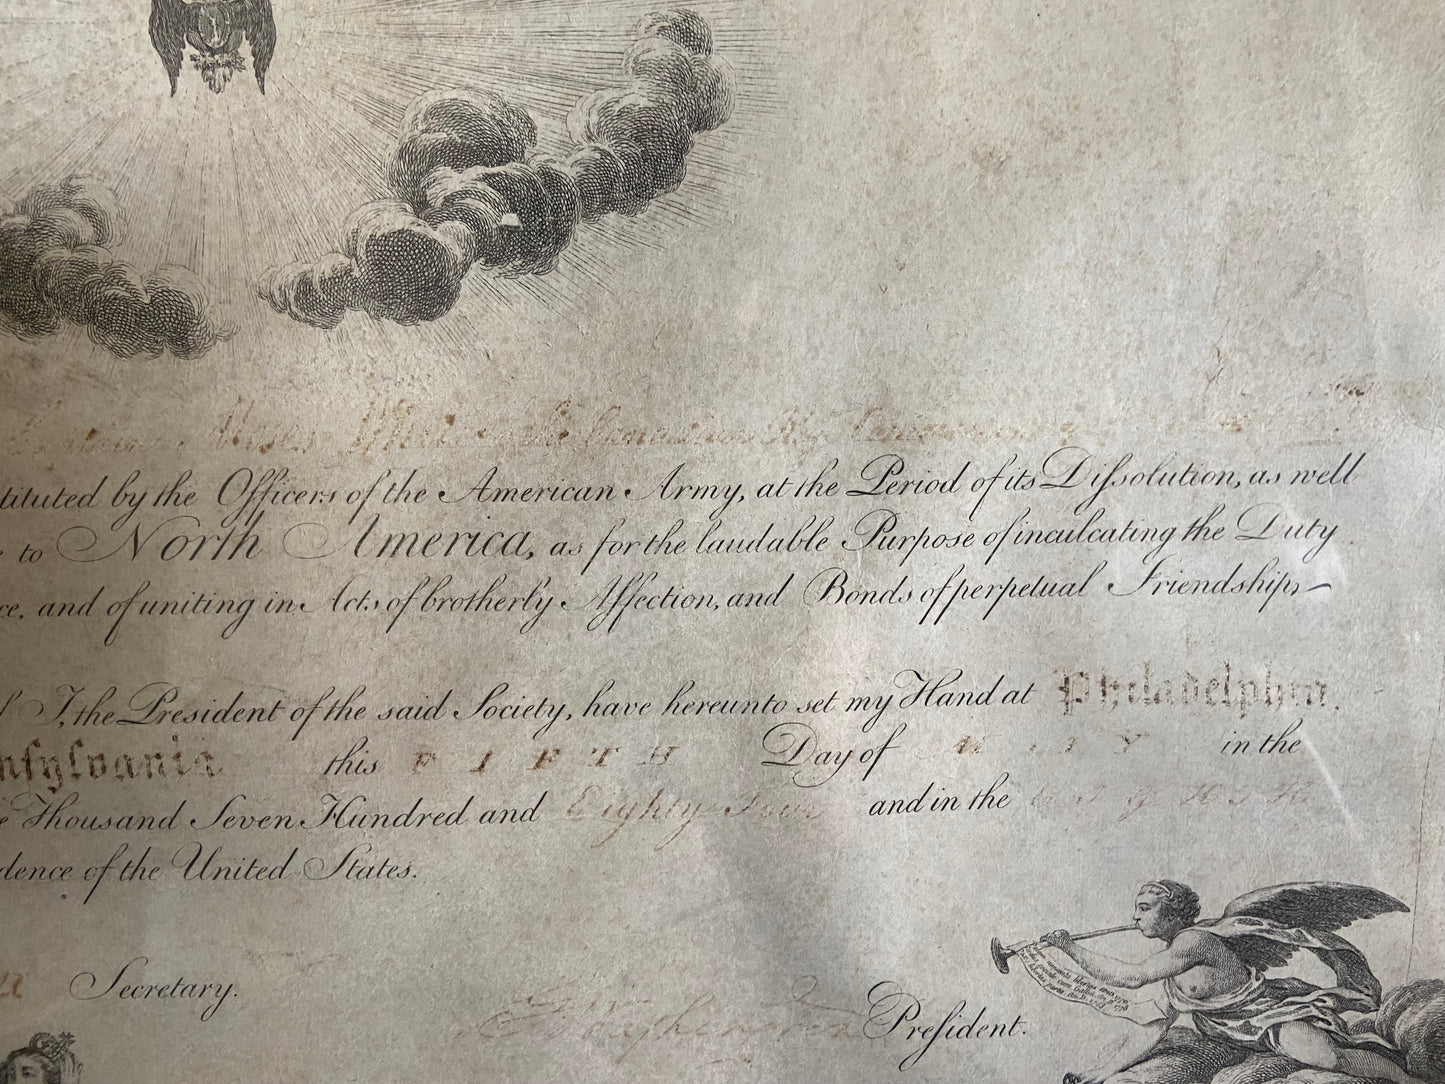 stituted by the Officers of the American Army, at the Period of its Dissolution, as well
to North America, as for the laudable Purpose of inculcating the Duty
ce, and of uniting in Acts of brotherly Affection, and Bonds of perpetual Friendship,
I, the President of the said Society, have hereunto set my Hand at Philadelphia,
nsylvania this FIFTH Day of MAY in the
e Thousand Seven Hundred and Eighty Four and in the EIGHTH
dence of the United States.
Secretary.
GWashington President.